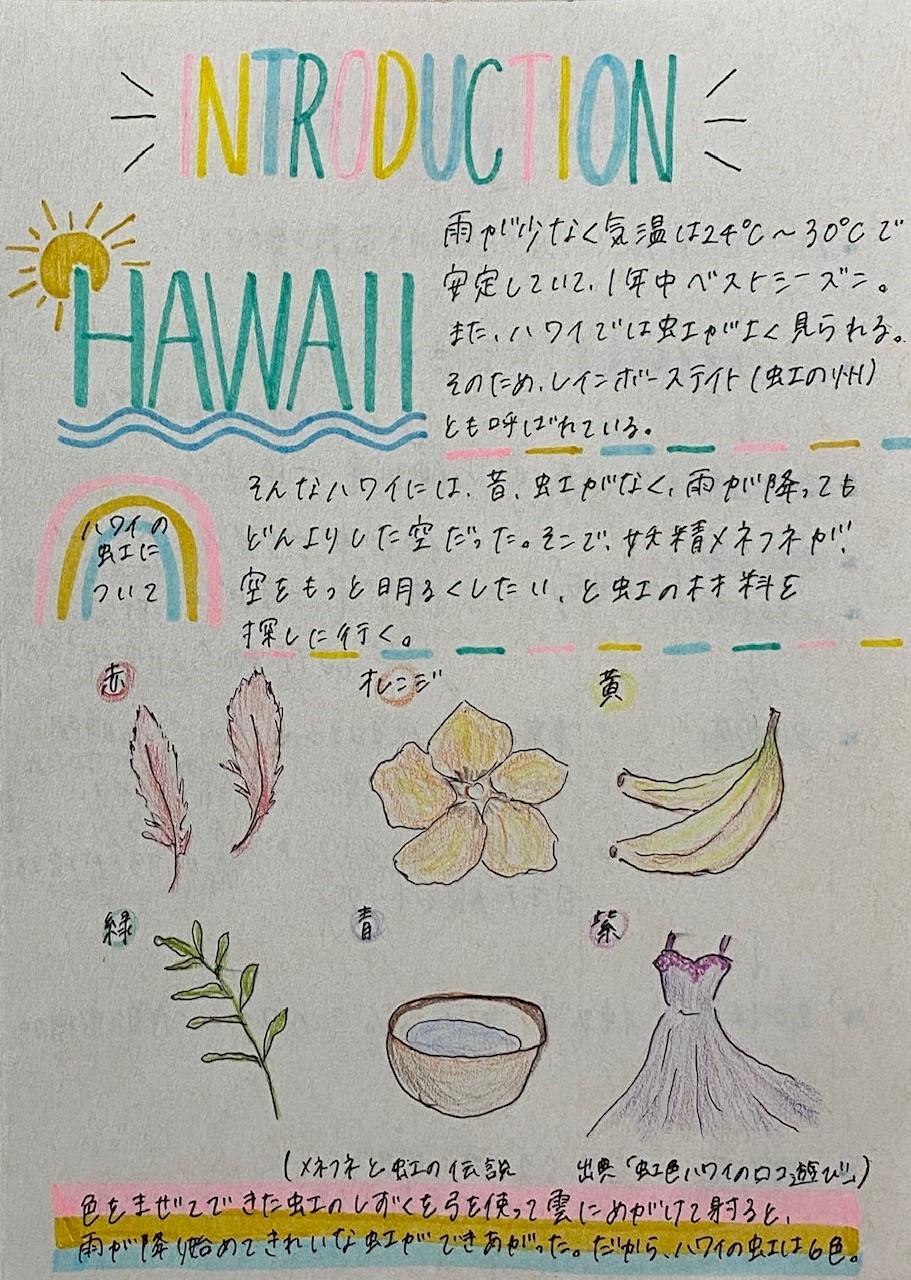 INTRODUCTION
HAWAII
雨が少なく気温は24℃〜30℃で
安定していて、1年中ベストシーズン。
また、ハワイでは虹がよく見られる。
そのため、レインボーステイト(虹の州)
とも呼ばれている。
ハワイの
虹に
ついて
そんなハワイには、昔、虹がなく、雨が降っても
どんよりした空だった。そこで、妖精メネフネが、
空をもっと明るくしたい、と虹の材料を
探しに行く。
赤
オレンジ
黄
緑
青
紫
(メネフネと虹の伝説 出典「虹色ハワイのロコ遊び」)
色をまぜてできた虹のしずくを弓を使って雲にめがけて射ると、
雨が降り始めてきれいな虹ができあがった。だから、ハワイの虹は6色。